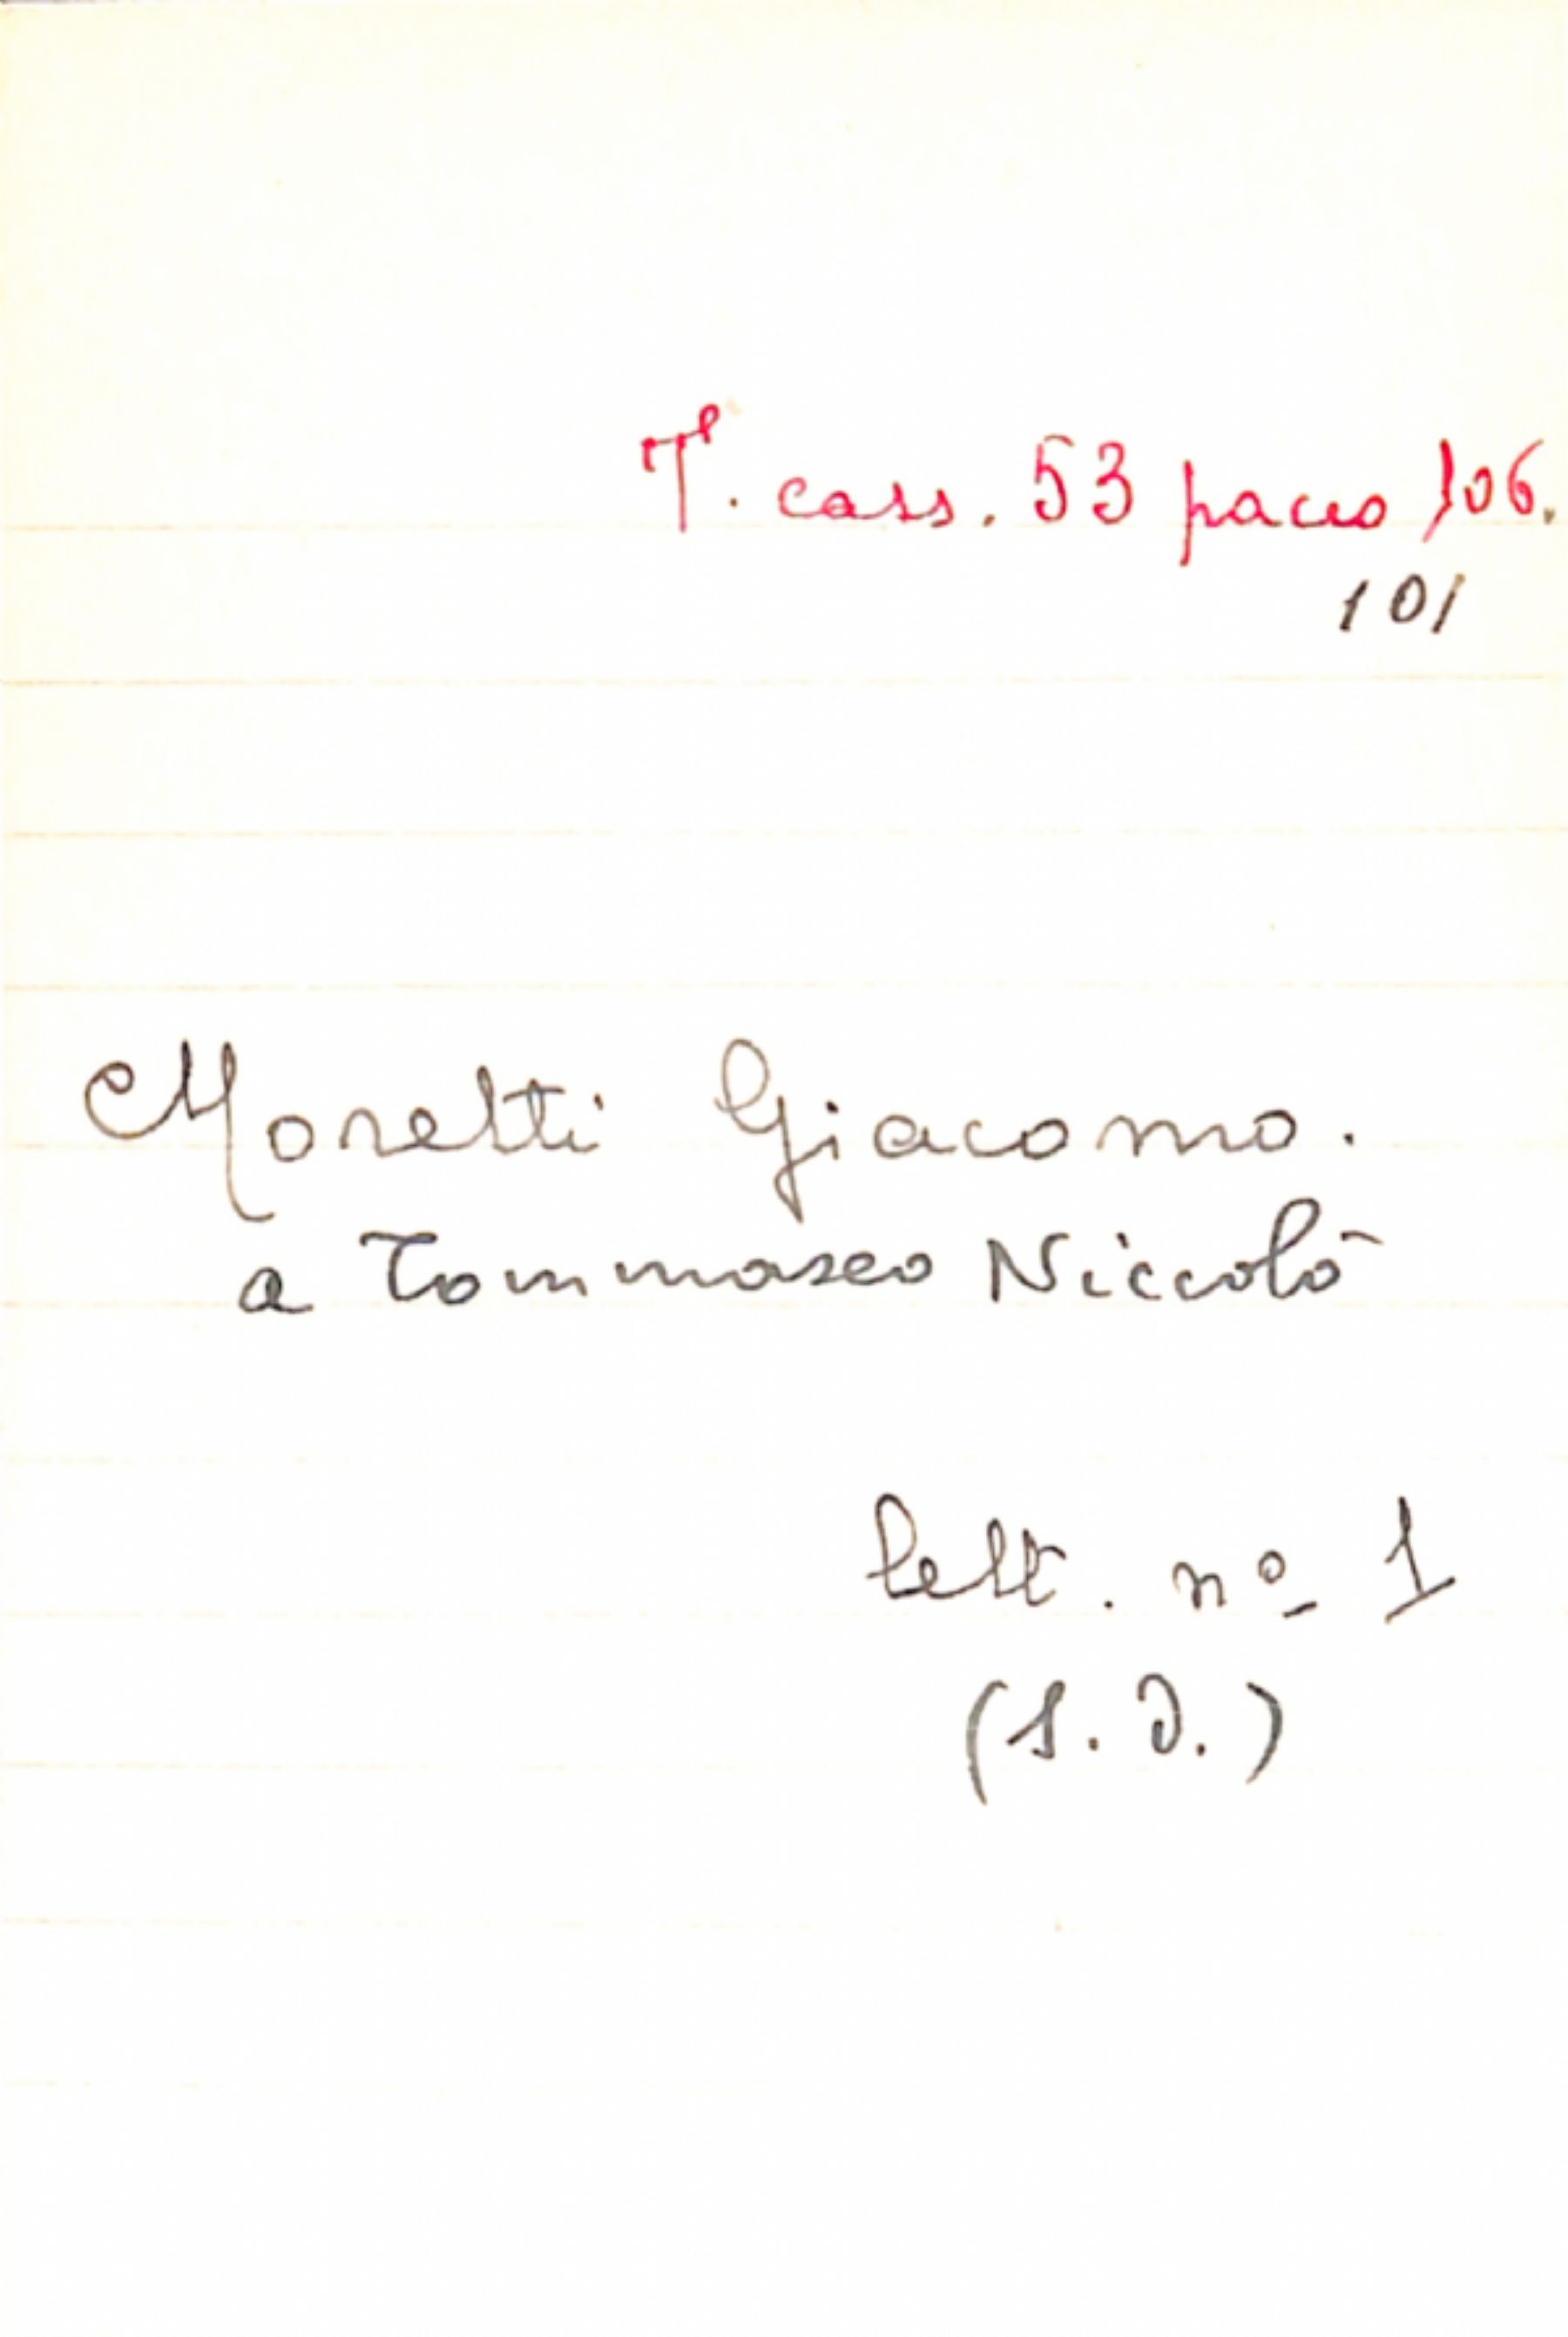 T. cass. 53 pacco 106.
101
Moretti Giacomo.
a Tommaseo Niccolò
lett. nº 1
(s. d.)